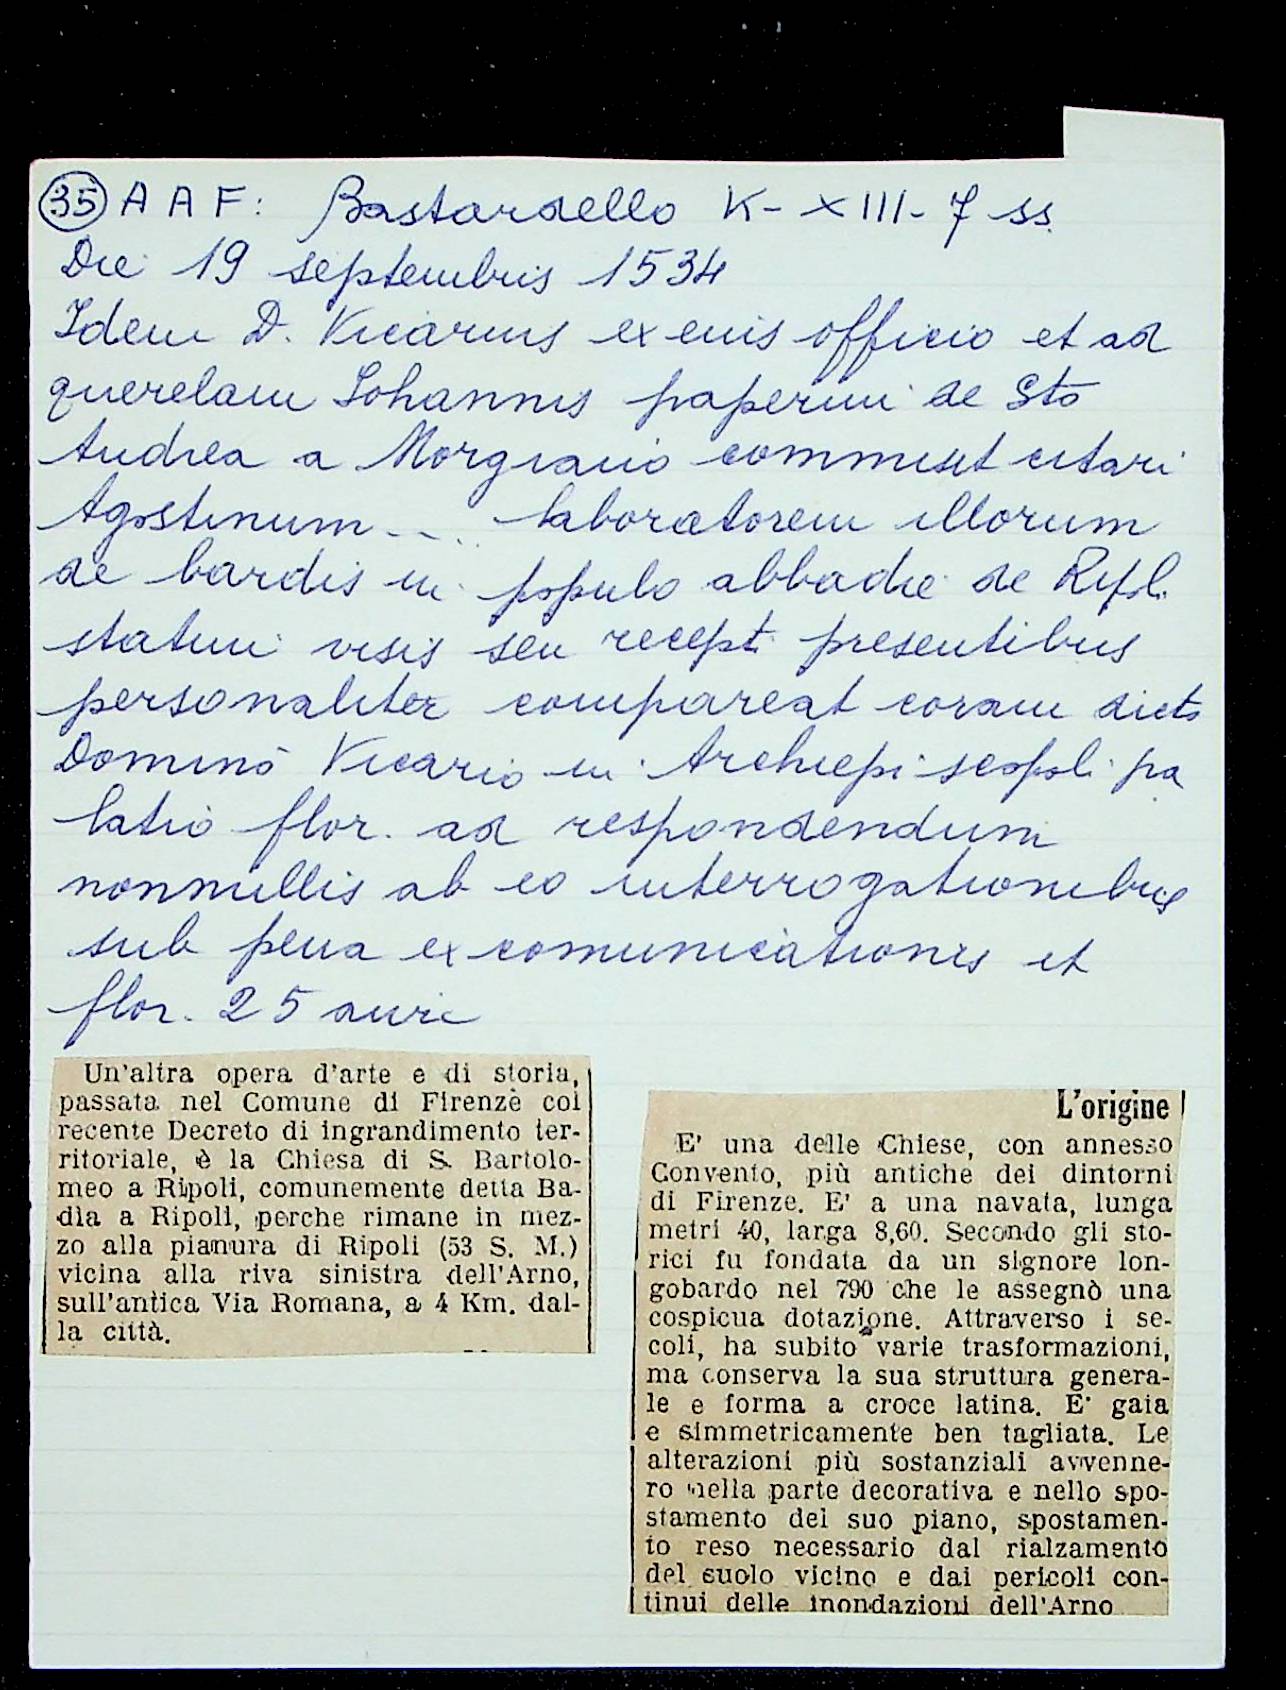 35 A A F: Bastardello K-XIII-7 ss.
Die 19 septembris 1534
Idem D. Vicarius ex eius officio et ad
querelam Iohannis paperini de Sto
Andrea a Morgiano commisit citari
Agostinum .... laboratorem illorum
de bardis in populo abbadie de Ripol.
statim visis seu recepti presentibus
personaliter compareat coram dicto
Domino Vicario in Archiepiscopoli pa
latio flor. ad respondendum
nonnullis ab eo interrogationibus
sub pena excomunicationis et
flor. 25 auri
Un'altra opera d'arte e di storia,
passata nel Comune di Firenze col
recente Decreto di ingrandimento ter-
ritoriale, è la Chiesa di S. Bartolo-
meo a Ripoli, comunemente detta Ba-
dia a Ripoli, perche rimane in mez-
zo alla pianura di Ripoli (53 S. M.)
vicina alla riva sinistra dell'Arno,
sull'antica Via Romana, a 4 Km. dal-
la città.
L'origine
E' una delle Chiese, con annesso
Convento, più antiche dei dintorni
di Firenze. E' a una navata, lunga
metri 40, larga 8,60. Secondo gli sto-
rici fu fondata da un signore lon-
gobardo nel 790 che le assegnò una
cospicua dotazione. Attraverso i se-
coli, ha subito varie trasformazioni,
ma conserva la sua struttura genera-
le e forma a croce latina. E' gaia
e simmetricamente ben tagliata. Le
alterazioni più sostanziali avvenne-
ro nella parte decorativa e nello spo-
stamento del suo piano, spostamen-
to reso necessario dal rialzamento
del suolo vicino e dai pericoli con-
tinui delle inondazioni dell'Arno